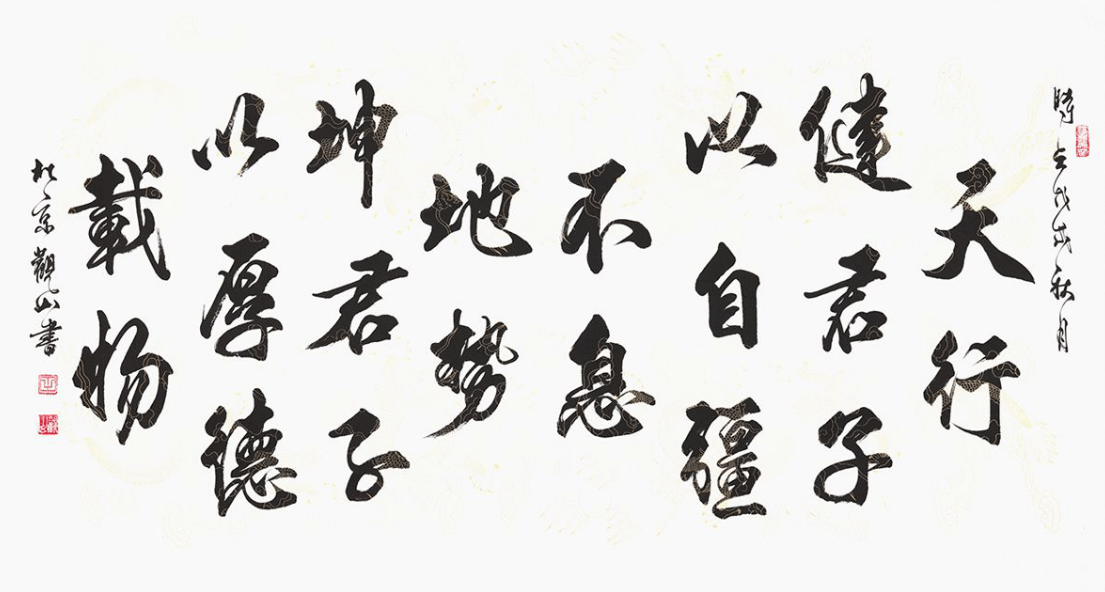 時在戊戌秋月
天行
健君子
以自疆
不息
地勢
坤君子
以厚德
載物
於京觀山書